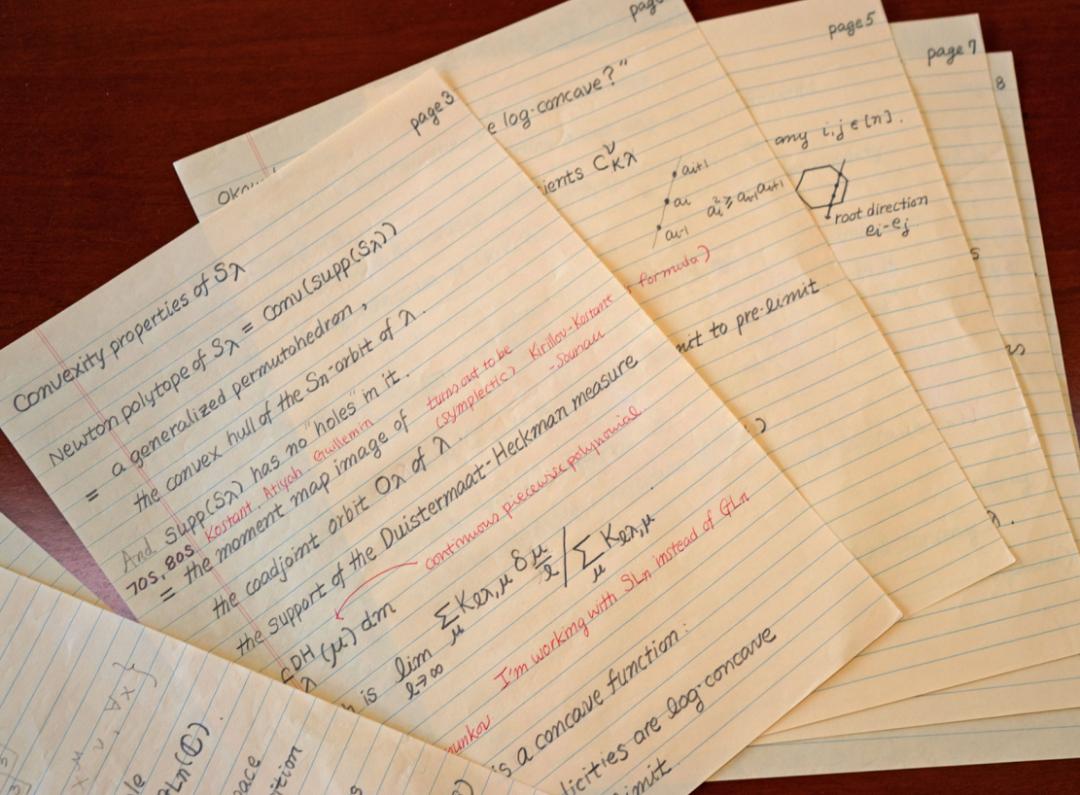 page 3
Convexity properties of Sλ
Newton polytope of Sλ = Conv(supp(Sλ))
= a generalized permutohedron,
the convex hull of the Sn-orbit of λ.
And supp(Sλ) has no "holes" in it.
70s, 80s Kostant, Atiyah Guillemin
= the moment map image of turns out to be (symplectic) Kirillov-Kostant-Souriau formula)
the coadjoint orbit Oλ of λ.
the support of the Duistermaat-Heckman measure
continuous piecewise polynomial
DH λ (μ) dm
is lim ℓ→∞ Σμ Kℓλ,μ δ μ/ℓ / Σμ Kℓλ,μ
I'm working with SLn instead of GLn
unkov
is a concave function:
licities are log-concave
limit.
e log-concave?"
ients C^ν_κλ
ai+1
ai
ai-1
ai² ≥ ai-1 ai+1
mit to pre-limit
page 5
any i,j ∈ [n].
root direction
ei-ej
page 7
8
Ln(ℂ).
pace
ition